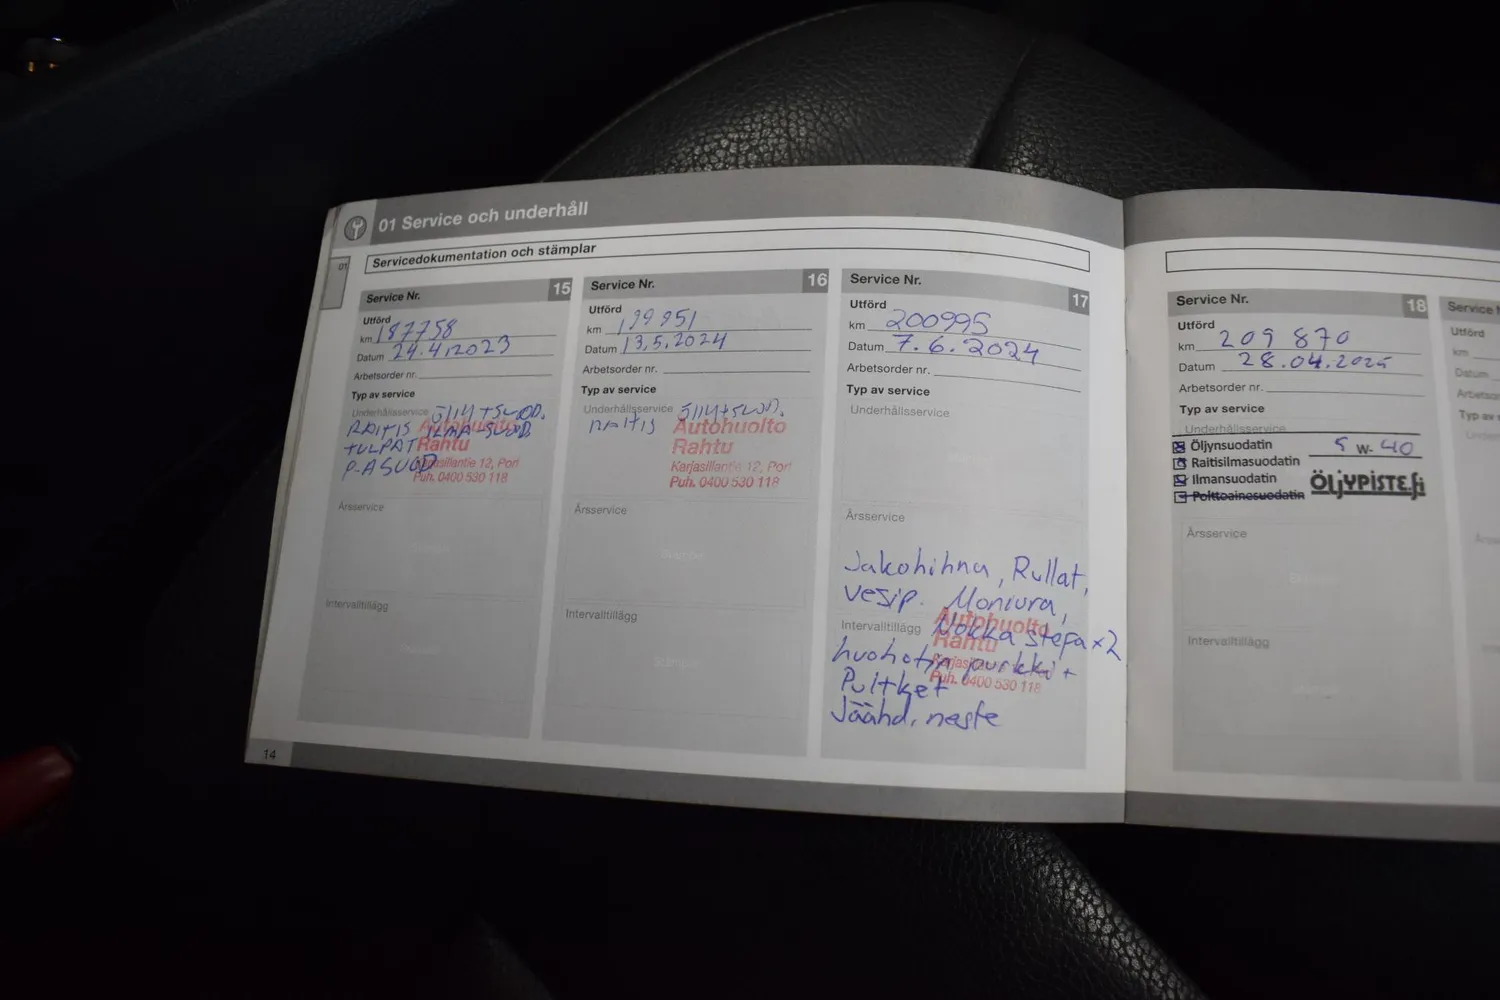 01 Service och underhåll
01
Servicedokumentation och stämplar
Service Nr. 15
Utförd
km 187758
Datum 24.4.2023
Arbetsorder nr.
Typ av service
Underhållsservice ÖLJY+SUOD.
RAITIS ILMA SUOD.
TULPAT
P-ASUOD
Autohuolto
Rahtu
Karjasillantie 12, Pori
Puh. 0400 530 118
Årsservice
Intervalltillägg
14
Service Nr. 16
Utförd
km 199951
Datum 13.5.2024
Arbetsorder nr.
Typ av service
Underhållsservice ÖLJY+SUOD.
RAITIS
Autohuolto
Rahtu
Karjasillantie 12, Pori
Puh. 0400 530 118
Årsservice
Stämpel
Intervalltillägg
Stämpel
Service Nr. 17
Utförd
km 200995
Datum 7.6.2024
Arbetsorder nr.
Typ av service
Underhållsservice
Årsservice
Jakohihna, Rullat,
vesip. Moniura,
Intervalltillägg Nokka stefa x2
huohotin purkki +
Pultket
Jäähd. neste
Autohuolto
Rahtu
Karjasillantie 12, Pori
Puh. 0400 530 118
Service Nr. 18
Utförd
km 209 870
Datum 28.04.2025
Arbetsorder nr.
Typ av service
Underhållsservice
Öljynsuodatin 5 W-40
Raitisilmasuodatin
Ilmansuodatin ÖLJYPISTE.fi
Polttoainesuodatin
Årsservice
Intervalltillägg
Service
Utförd
km
Datum
Arbetsor
Typ av s